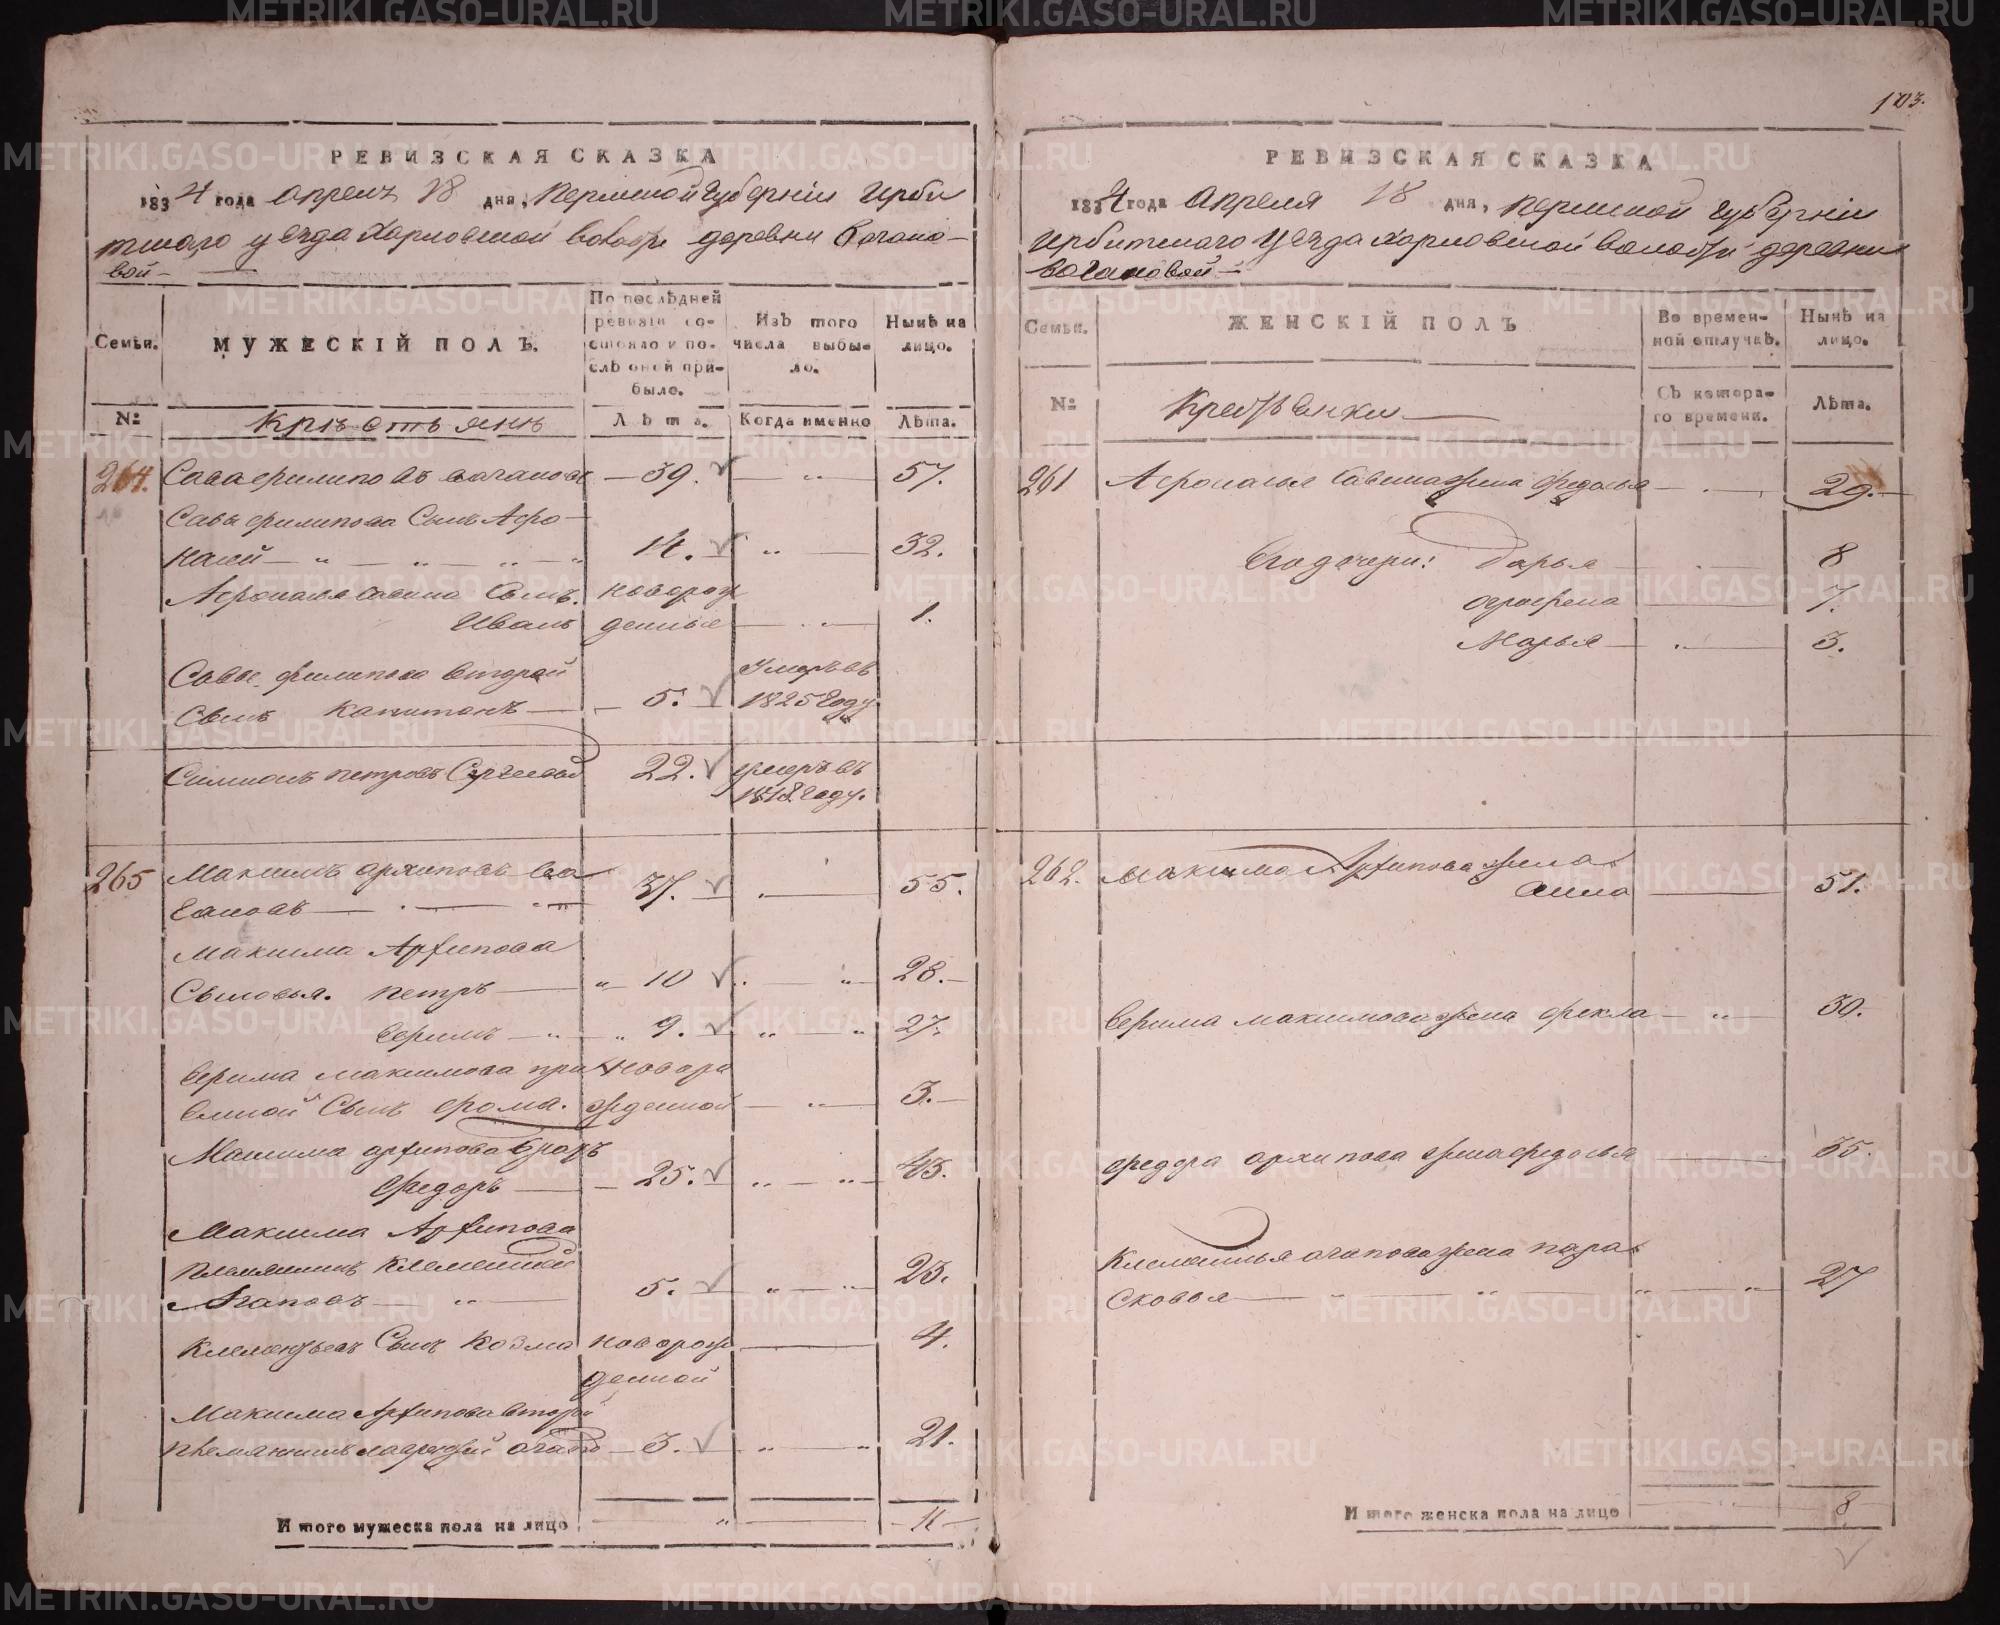 103.
РЕВИЗСКАЯ СКАЗКА
1834 года апреля 18 дня, Пермской губернии Ирби
тскаго уезда Харловской волости деревни Вагано-
вой
Семьи.
МУЖЕСКІЙ ПОЛЪ.
По послѣдней ревизіи состояло и послѣ оной прибыло.
Изъ того числа выбыло.
Нынѣ на лицо.
№
Крестьяне
Лѣта.
Когда именно
Лѣта.
264. Сава Филиповъ Вагановъ — 39. — „ — 57.
Савы Филипова Сынъ Афо-
насей — „ — „ — „ 14. „ — 32.
Афонасья Савина Сынъ новорож
Иванъ денные — „ — 1.
Савы Филипова второй умеръ въ
Сынъ Капитонъ — 5. 1825 году
Симионъ Петровъ Сергеевъ 22. умеръ въ
1818 году.
265 Максимъ Архиповъ Ва
гановъ — 37. — 55.
Максима Архипова
Сыновья. Петръ — „ 10 — „ 28.
Ефимъ — „ 9. „ — „ 27.
Ефима Максимова при новоро
емной Сынъ Фома. жденной — „ — 3.
Максима Архипова братъ
Федоръ — 25. „ — „ 43.
Максима Архипова
племянникъ Клементей
Агаповъ — „ 5. „ — „ 23.
Клементьевъ Сынъ Козма новорож — 4.
денной
Максима Архипова второй
племянникъ Лаврентей Агапо — 3. „ — „ 21.
И того мужеска пола на лицо „ — 11
РЕВИЗСКАЯ СКАЗКА
1834 года апреля 18 дня, Пермской губерніи
Ирбитскаго уезда Харловской волости деревни
Вагановой
Семьи.
ЖЕНСКІЙ ПОЛЪ
Во временной отлучкѣ.
Нынѣ на лицо.
№
Крестьянки
Съ котораго времени.
Лѣта.
261 Афонасья Савина жена Федосья — 29.
Его дочери: Дарья — 8
Огрофена — 7.
Марья — „ — 3.
262. Максима Архипова жена
Анна — 51.
Ефима Максимова жена Фекла — „ — 30.
Федора Архипова жена Федосья — 35.
Клементья Агапова жена Пара
сковья — „ — „ — „ — „ 27
И того женска пола на лицо 8
METRIKI.GASO-URAL.RU